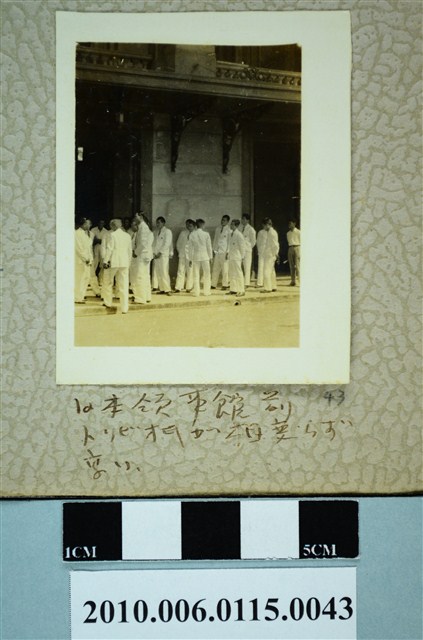 日本領事館前
トリビオが相変らず
高い、
43
1CM
5CM
2010.006.0115.0043